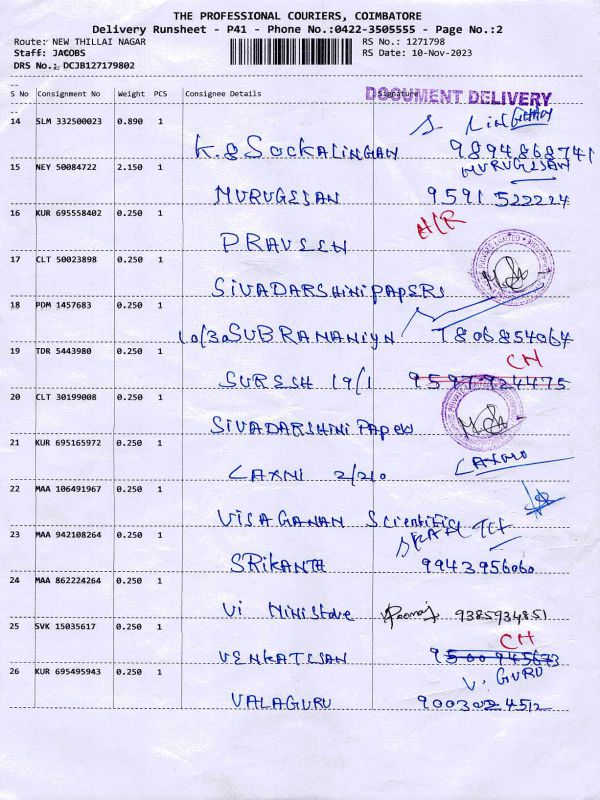 THE PROFESSIONAL COURIERS, COIMBATORE
Delivery Runsheet - P41 - Phone No.:0422-3505555 - Page No.:2
Route: NEW THILLAI NAGAR RS No.: 1271798
Staff: JACOBS RS Date: 10-Nov-2023
DRS No.: DCJB127179802
S No Consignment No Weight PCS Consignee Details Signature
DOCUMENT DELIVERY
14 SLM 332500023 0.890 1
K.g SockALINGAN 9894868741
15 NEY 50084722 2.150 1 MURUGESAN
MURUGESAN 9591522224
16 KUR 695558402 0.250 1
PRAVEEN
17 CLT 50023898 0.250 1
SIVADARSHINI PAPERS
18 PDM 1457683 0.250 1
10/30 SUBRAMANIYN 7806854064
19 TDR 5443980 0.250 1 CH
SURESH 19/1 9597924475
20 CLT 30199008 0.250 1
SIVADARSHINI Papers
21 KUR 695165972 0.250 1
LAXMI 2/210
22 MAA 106491967 0.250 1
VISAGANAN Scientific
23 MAA 942108264 0.250 1
SRIKANTH 9943956060
24 MAA 862224264 0.250 1
Vi MiniStore 9385934851
25 SVK 15035617 0.250 1 CH
VENKATESAN
26 KUR 695495943 0.250 1 V. GURU
VALAGURU 9003024512